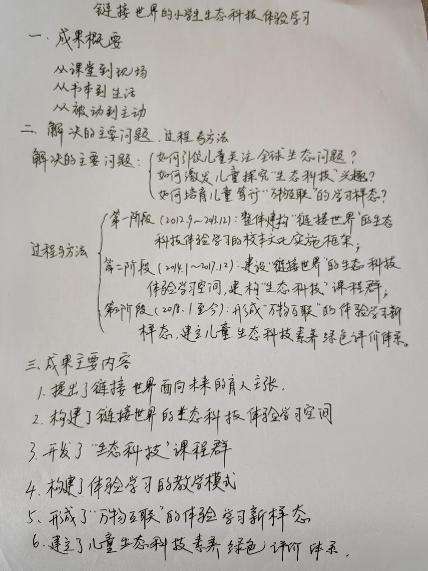 链接世界的小学生生态科技体验学习
一、成果概要
从课堂到现场
从书本到生活
从被动到主动
二、解决的主要问题、过程与方法
解决的主要问题:
如何引领儿童关注全球生态问题?
如何激发儿童探究"生态科技"兴趣?
如何培育儿童"万物互联"的学习样态?
过程与方法
第一阶段(2012.9~2013.12):整体建构"链接世界"的生态
科技体验学习的校本文化实施框架;
第二阶段(2014.1~2017.12):建设"链接世界"的生态科技
体验学习空间,建构"生态科技"课程群;
第三阶段(2018.1至今):形成"万物互联"的体验学习新
样态,建立儿童生态科技素养绿色评价体系。
三、成果主要内容
1.提出了链接世界面向未来的育人主张.
2.构建了链接世界的生态科技体验学习空间
3.开发了"生态科技"课程群
4.构建了体验学习的教学模式
5.形成了"万物互联"的体验学习新样态
6.建立了儿童生态科技素养绿色评价体系.